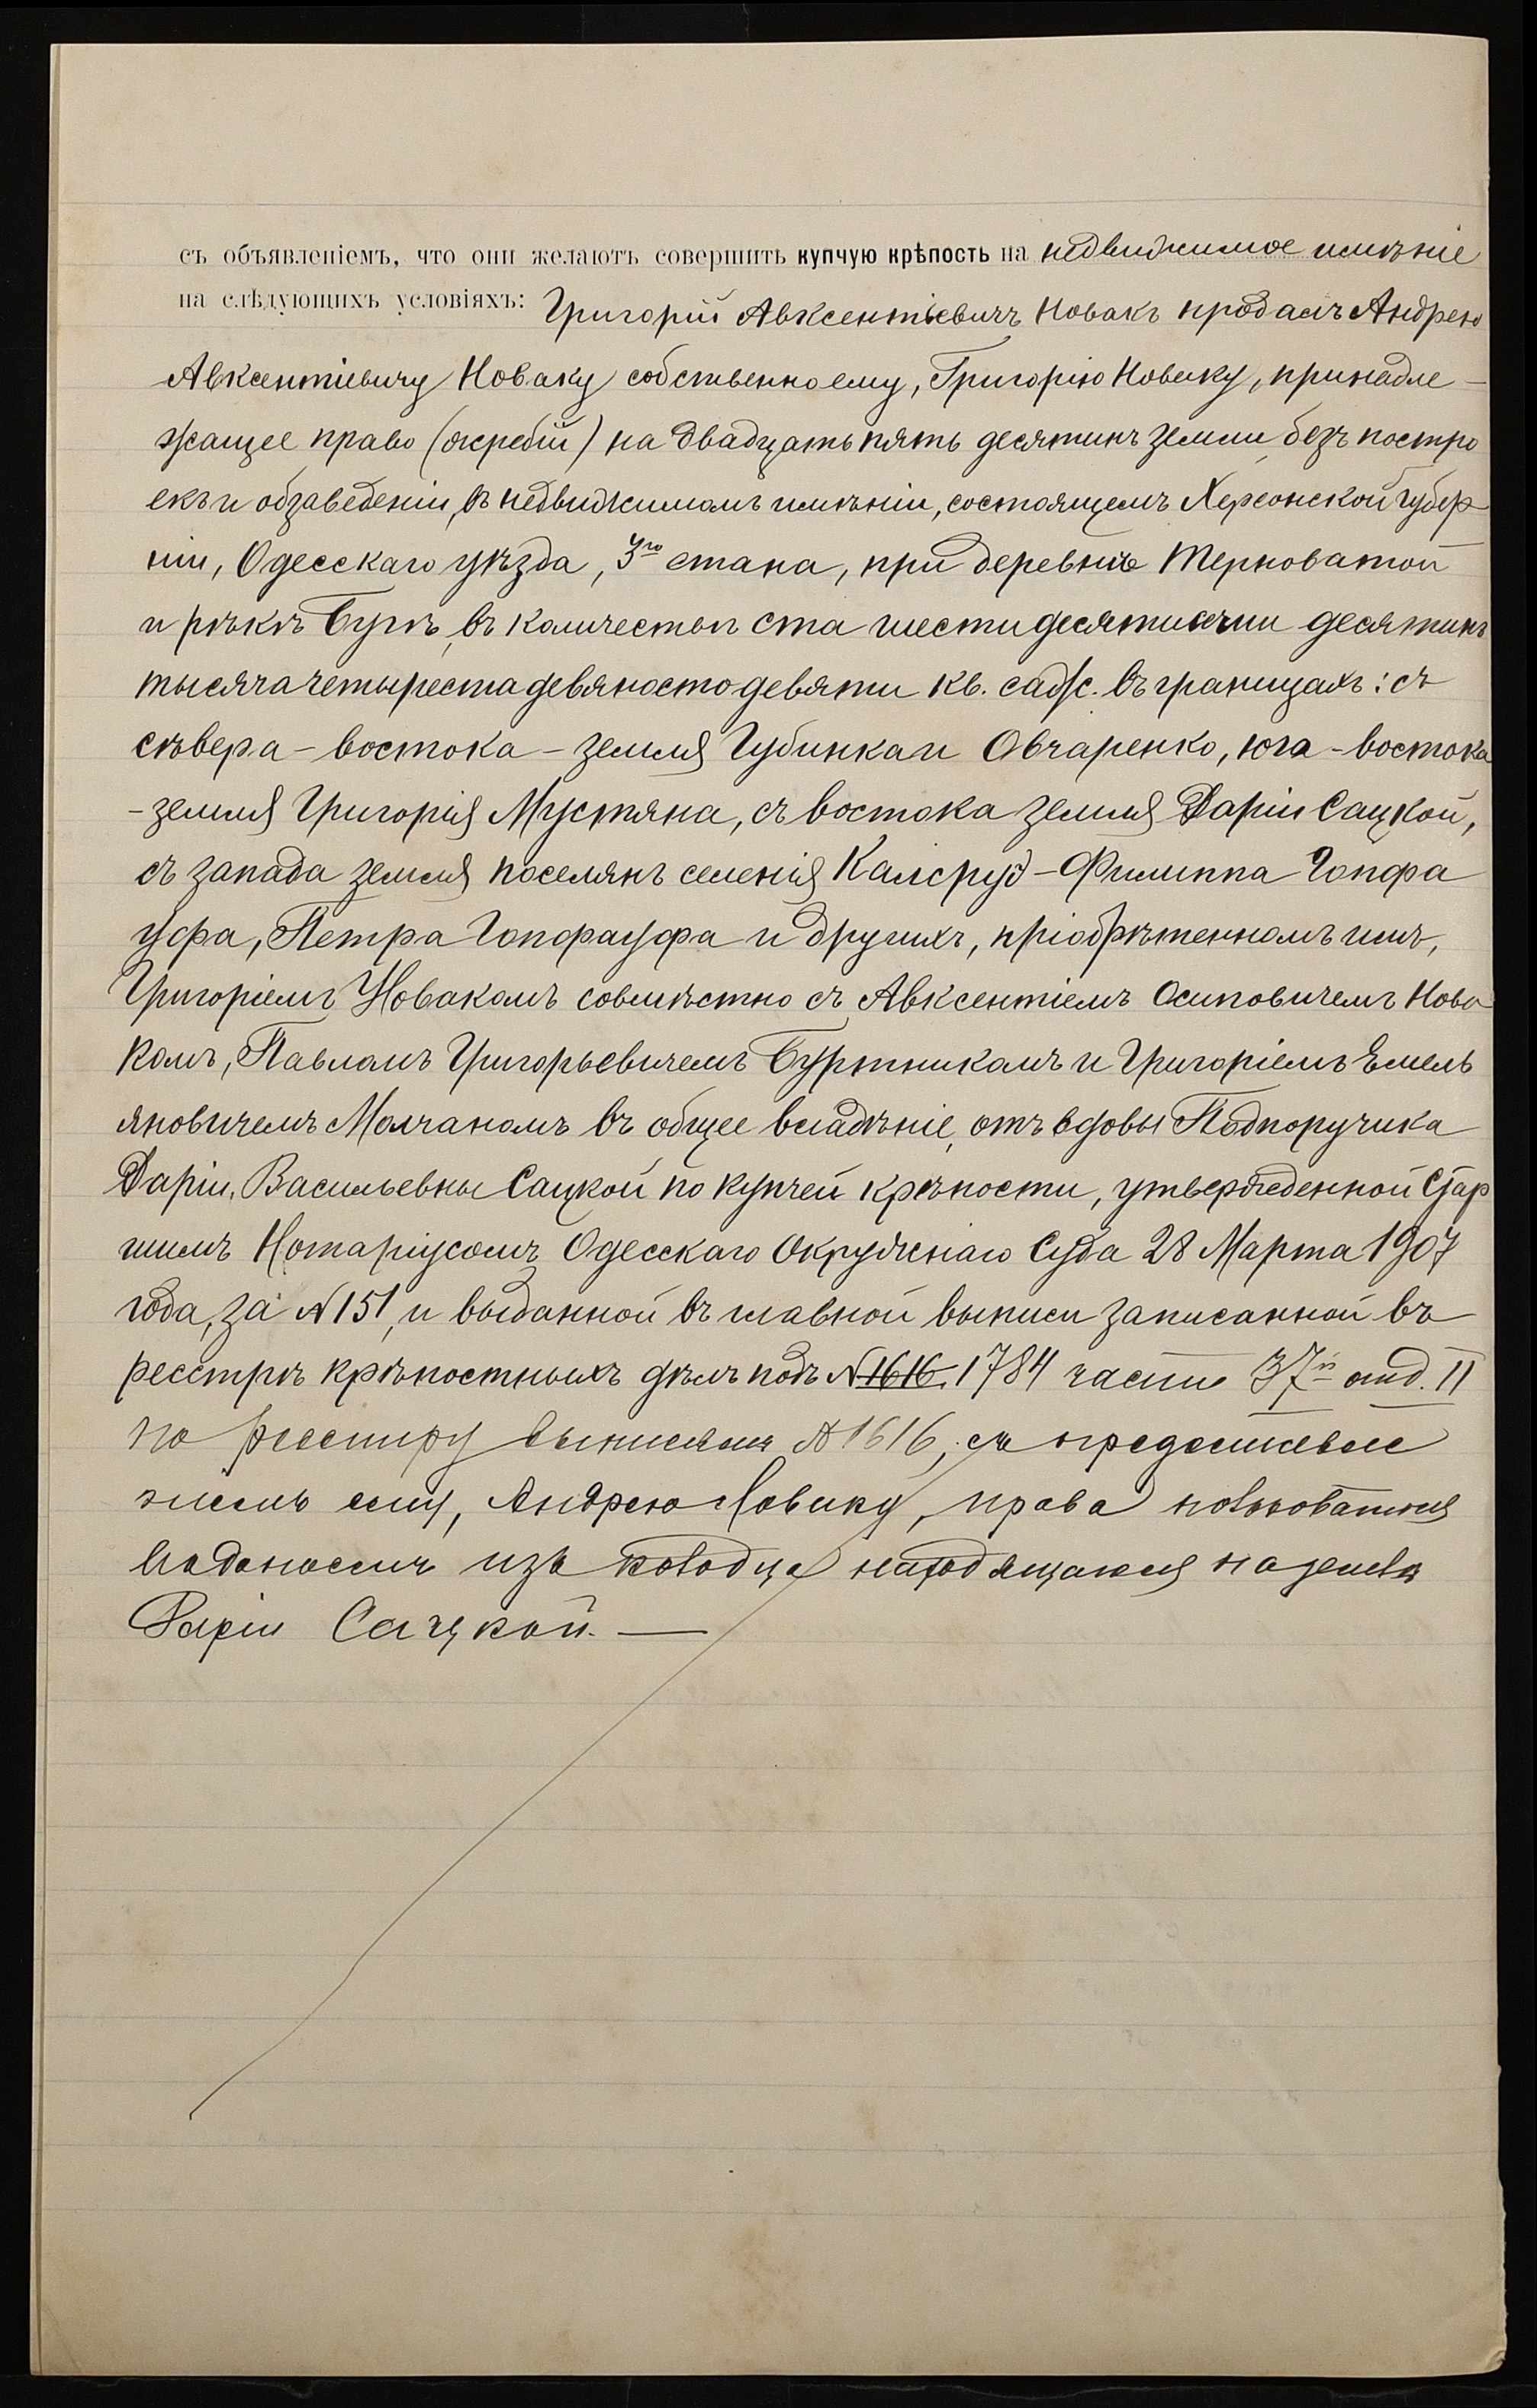 съ объявленіемъ, что они желаютъ совершить купчую крѣпость на недвижимое имѣніе
на слѣдующихъ условіяхъ: Григорій Авксентіевичъ Новакъ продалъ Андрею
Авксентіевичу Новаку собственно ему, Григорію Новаку, принадле-
жащее право (жребій) на двадцать пять десятинъ земли, безъ постро
екъ и обзаведеніи, въ недвижимомъ имѣніи, состоящемъ Херсонской Губер-
ніи, Одесскаго уѣзда, 3го стана, при деревнѣ Терноватой
и рѣкѣ Бугѣ, въ количествѣ ста шестидесяти десятинъ
тысяча четыреста девяносто девяти кв. саж. въ границахъ: съ
сѣвера - востока - земля Губинка и Овчаренко, юга - востока
- земля Григорія Мустяна, съ востока земля Даріи Сацкой,
съ запада земля поселянъ селенія Калсруэ - Филиппа Гопфа
уфа, Петра Гопфауфа и другихъ, пріобрѣтенномъ имъ,
Григоріемъ Новакомъ совмѣстно съ Авксентіемъ Осиповичемъ Нова
комъ, Павломъ Григорьевичемъ Буртникомъ и Григоріемъ Емель
яновичемъ Молчаномъ въ общее владѣніе, отъ вдовы Подпоручика
Даріи Васильевны Сацкой по купчей крѣпости, утвержденной Стар
шимъ Нотаріусомъ Одесскаго Окружнаго Суда 28 Марта 1907
года, за N 151, и выданной въ главной выписи записанной въ
реестрѣ крѣпостныхъ дѣлъ подъ N 1616. 1784 части 37й отд. II
по реестру выписямъ N 1616, съ предоставле
ніемъ ему, Андрею Новаку, права пользоваться
водопоемъ изъ колодца находящагося на землѣ
Даріи Сацкой. —